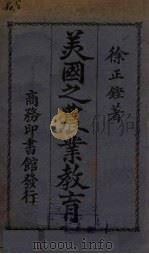 徐正鏗著
美國之業教育
商務印書館發行